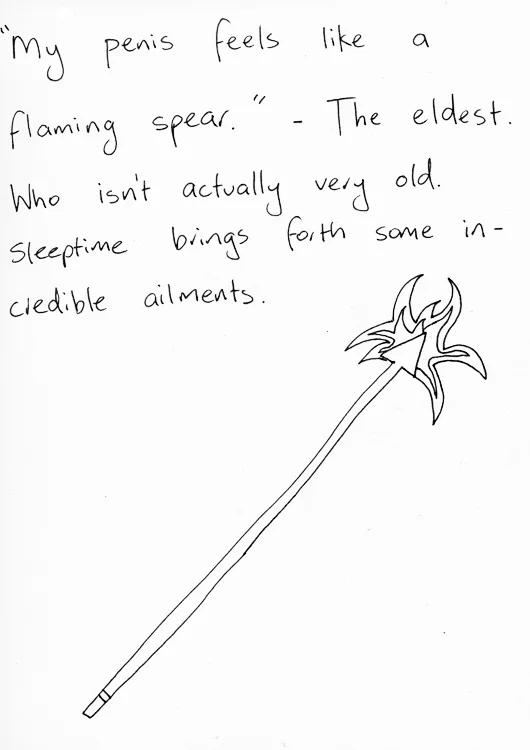 "My penis feels like a
flaming spear." - The eldest.
Who isn't actually very old.
Sleeptime brings forth some in-
credible ailments.